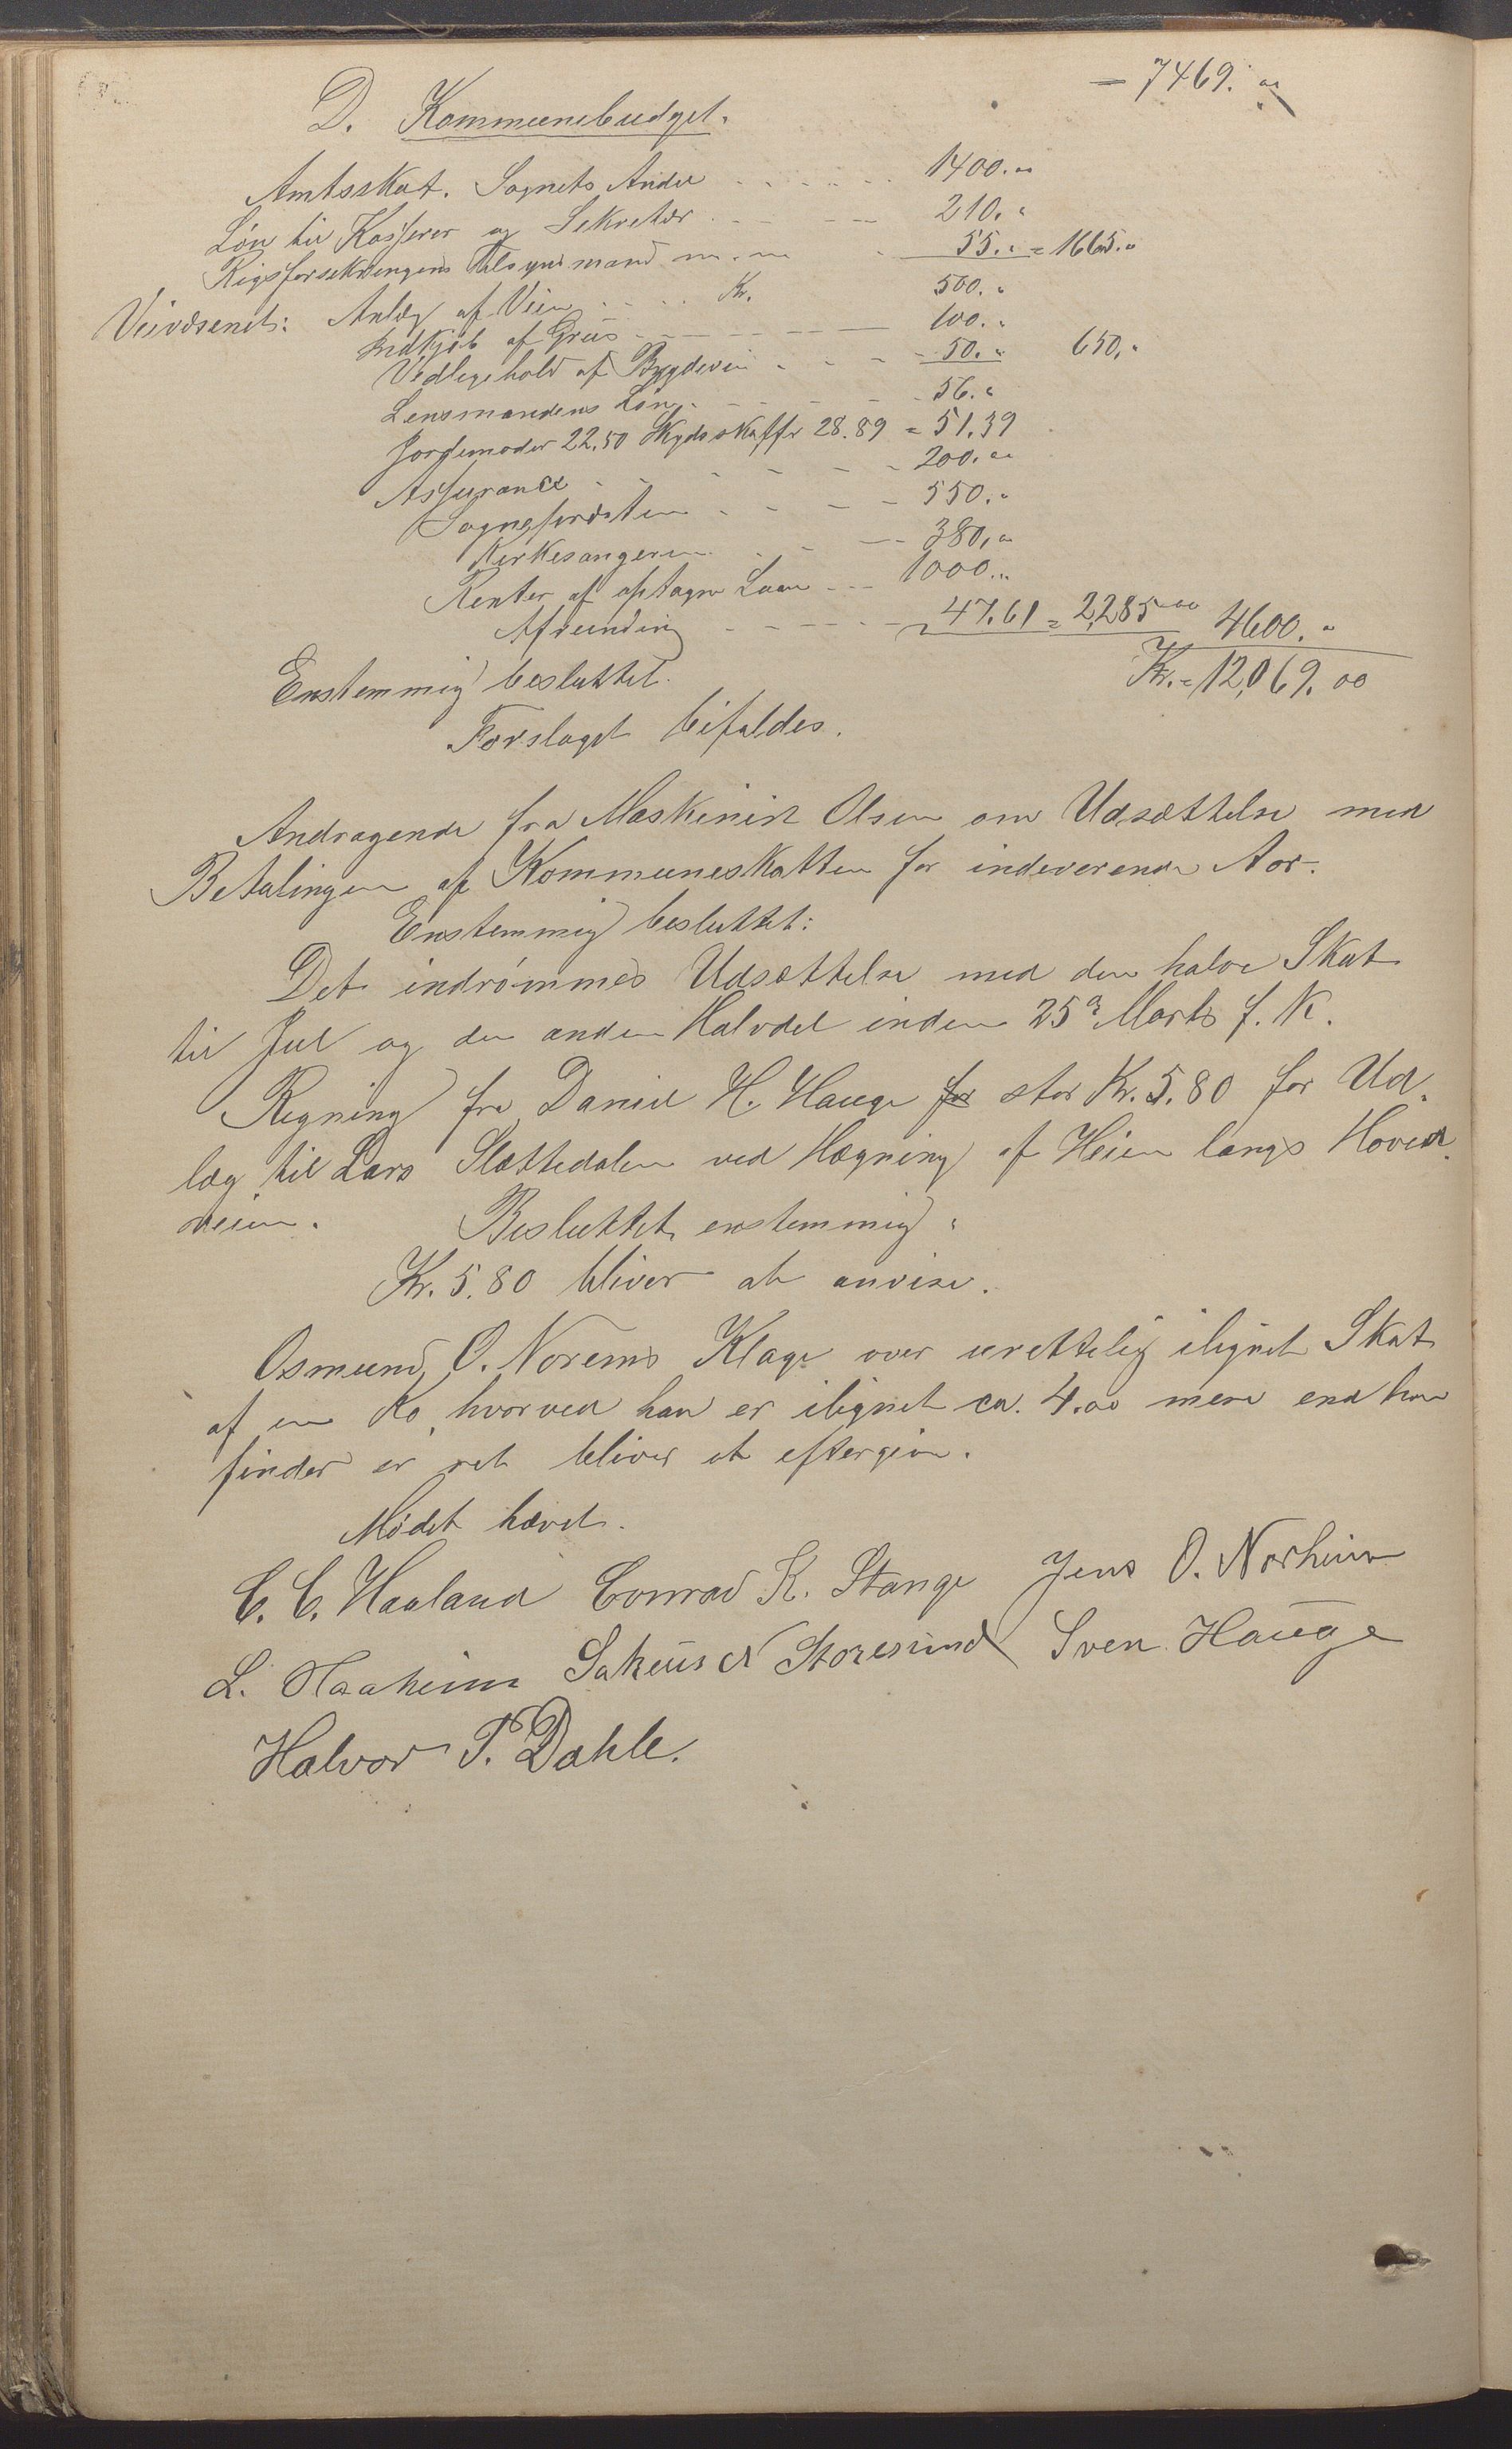 = 7469. "
D. Kommunebudget.
Amtsskat. Sognets Andel - - - - 1400. "
Løn til Kasserer og Sekretær - - - - 210. "
Rigsforsikringens Tilsynsmand m. m - 55. " = 1665. "
Veivæsenet: Anlæg af Veie - - - - Kr. 500. "
Indkjøb af Grus - - - - 100. "
Vedligehold af Bygdevei - - - - 50. " 650. "
Lensmandens Løn - - - - 56. "
Jordemoder 22.50 Skydsskaffer 28.89 = 51.39
Assurance - - - - 200. "
Sognepresten - - - - 550. "
Kirkesangeren - - - - 380. "
Renter af optagne Laan - - - 1000. "
Afrunding - - - - 47.61 = 2,285 00 4600. "
Kr. = 12,069. 00
Enstemmig besluttet.
Forslaget bifaldes.
Andragende fra Maskinist Olsen om Udsættelse med
Betalingen af Kommuneskatten for indeværende Aar.
Enstemmig besluttet:
Det indrømmes Udsættelse med den halve Skat
til Jul og den anden Halvdel inden 25de Marts f. K.
Regning fra Daniel H. Hauge for stor Kr. 5.80 for Ud-
læg til Lars Slættedalen ved Hægning af Heien langs Hoved-
veien. Besluttet enstemmig:
Kr. 5.80 bliver at anvise.
Osmund O. Norems Klage over urettelig ilignet Skat
af en Ko, hvorved han er ilignet ca. 4.00 mere end han
finder er ret bliver at eftergive.
Mødet hævet.
C. C. Haaland Conrad K. Stange Jens O. Norheim
L. Haaheim Sakeus Storesund Sven Hauge
Halvor P. Dahle.